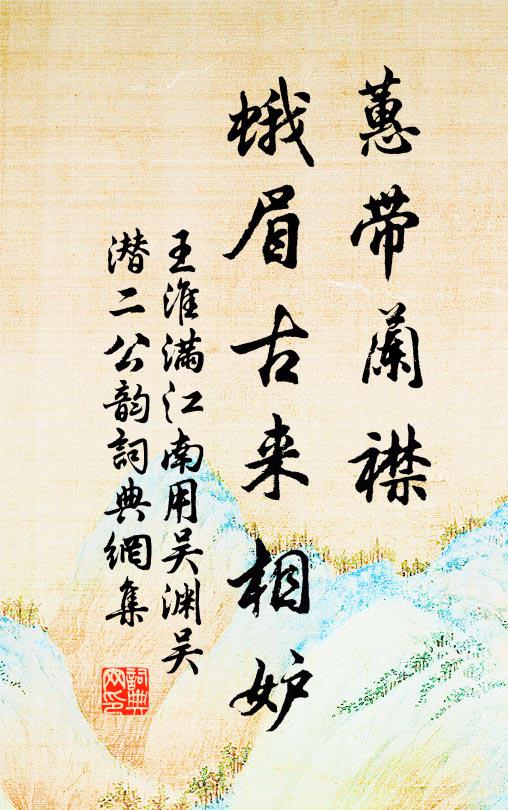 蕙带蘭襟
蛾眉古来相妒
王淮满江南用吴渊吴
潜二公韵詞典網集
詞典
网印